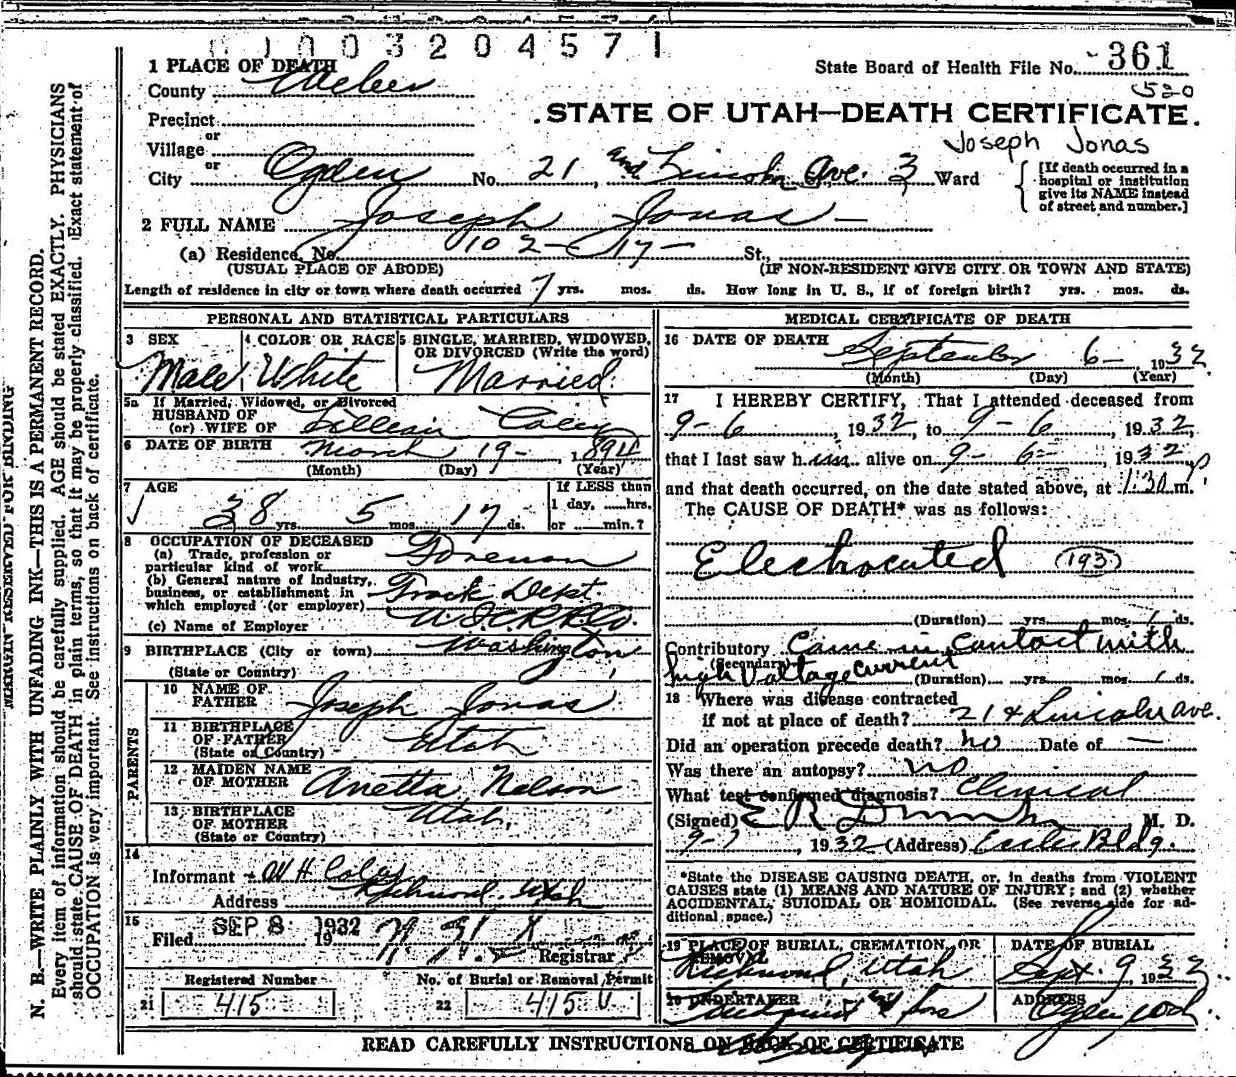 01003204571
1 PLACE OF DEATH
County Weber
State Board of Health File No. 361
520
Precinct
or
STATE OF UTAH—DEATH CERTIFICATE.
Village
or
Joseph Jonas
City Ogden No. 21 and Lincoln Ave. 3 Ward
[If death occurred in a
hospital or institution
give its NAME instead
of street and number.]
2 FULL NAME Joseph Jonas
(a) Residence, No. 102-17- St.,
(USUAL PLACE OF ABODE) (IF NON-RESIDENT GIVE CITY OR TOWN AND STATE)
Length of residence in city or town where death occurred 7 yrs. mos. ds. How long in U. S., if of foreign birth? yrs. mos. ds.
PERSONAL AND STATISTICAL PARTICULARS
3 SEX
Male
4 COLOR OR RACE
White
5 SINGLE, MARRIED, WIDOWED,
OR DIVORCED (Write the word)
Married
5a If Married, Widowed, or Divorced
HUSBAND OF
(or) WIFE OF Lillian Coley
6 DATE OF BIRTH March 19- 1894
(Month) (Day) (Year)
7 AGE
38 yrs. 5 mos. 17 ds.
If LESS than
1 day, hrs.
or min.?
8 OCCUPATION OF DECEASED
(a) Trade, profession or
particular kind of work Foreman
(b) General nature of Industry,
business, or establishment in
which employed (or employer) Track Dept
(c) Name of Employer U.I.C.R.R.Co.
9 BIRTHPLACE (City or town) Washington
(State or Country)
PARENTS
10 NAME OF
FATHER Joseph Jonas
11 BIRTHPLACE
OF FATHER
(State or Country) Utah
12 MAIDEN NAME
OF MOTHER Anetta Nelson
13 BIRTHPLACE
OF MOTHER
(State or Country) Utah
14
Informant W H Coley
Address Richmond, Utah
15
Filed SEP 8 1932 19
Registrar
Registered Number
21 415
No. of Burial or Removal Permit
22 415
MEDICAL CERTIFICATE OF DEATH
16 DATE OF DEATH September 6- 1932
(Month) (Day) (Year)
17 I HEREBY CERTIFY, That I attended deceased from
9-6, 1932, to 9-6, 1932,
that I last saw him alive on 9-6-, 1932,
and that death occurred, on the date stated above, at 1:30 p m.
The CAUSE OF DEATH* was as follows:
Electrocuted (193)
(Duration) yrs. mos. 1 ds.
Contributory Came in contact with
(Secondary)
high voltage current
(Duration) yrs. mos. 1 ds.
18 Where was disease contracted
if not at place of death? 21 & Lincoln Ave.
Did an operation precede death? no Date of —
Was there an autopsy? no
What test confirmed diagnosis? Clinical
(Signed) E R Dumke M. D.
9-7, 1932 (Address) Eccles Bldg.
*State the DISEASE CAUSING DEATH, or, in deaths from VIOLENT
CAUSES state (1) MEANS AND NATURE OF INJURY; and (2) whether
ACCIDENTAL, SUICIDAL OR HOMICIDAL. (See reverse side for ad-
ditional space.)
19 PLACE OF BURIAL, CREMATION, OR
REMOVAL
Richmond, Utah
DATE OF BURIAL
Sept. 9 1932
20 UNDERTAKER
& Sons
ADDRESS
Ogden
READ CAREFULLY INSTRUCTIONS ON BACK OF CERTIFICATE
MARGIN RESERVED FOR BINDING
N. B.—WRITE PLAINLY WITH UNFADING INK—THIS IS A PERMANENT RECORD.
Every item of information should be carefully supplied. AGE should be stated EXACTLY. PHYSICIANS
should state CAUSE OF DEATH in plain terms, so that it may be properly classified. Exact statement of
OCCUPATION is very important. See instructions on back of certificate.